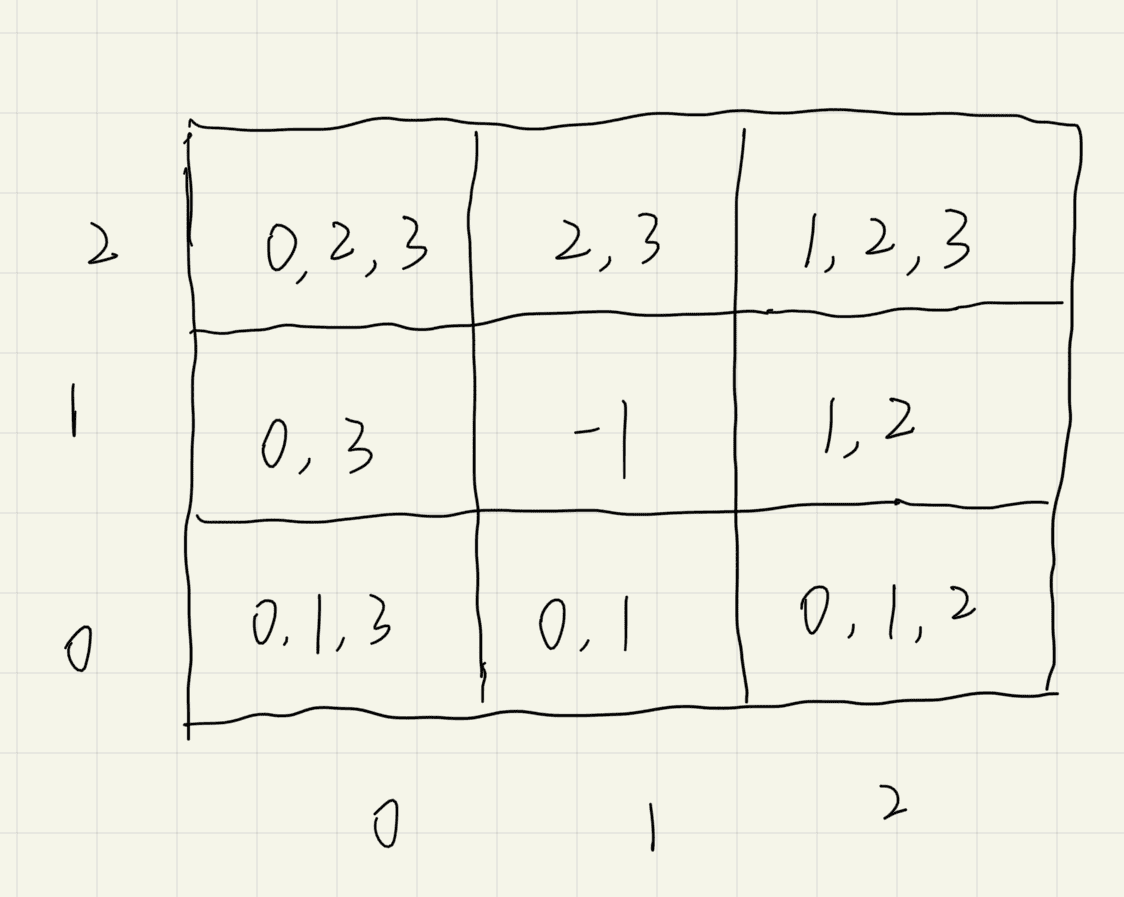 2 0,2,3 2,3 1,2,3
1 0,3 -1 1,2
0 0,1,3 0,1 0,1,2
0 1 2